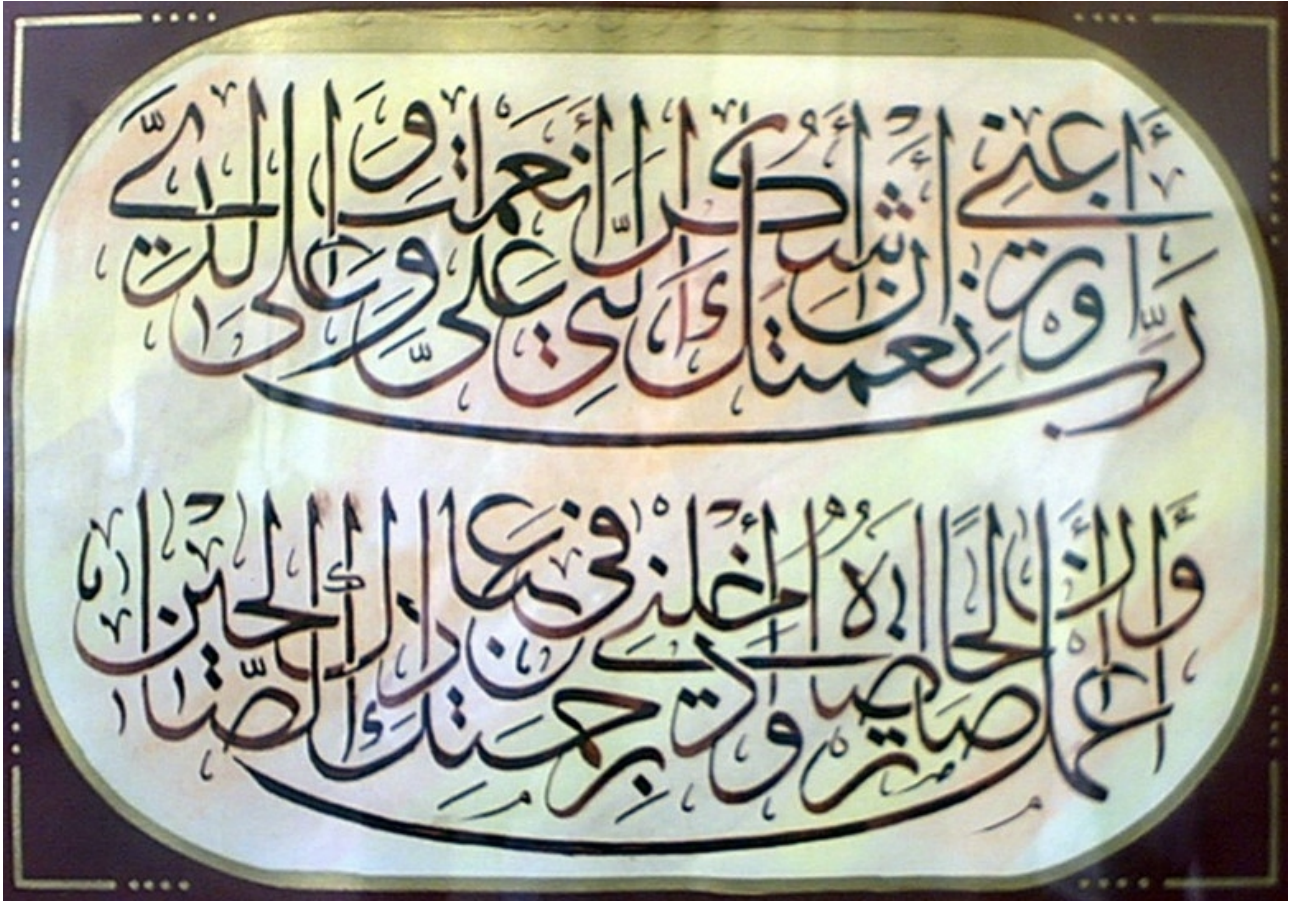 رَبِّ أَوْزِعْنِي أَنْ أَشْكُرَ نِعْمَتَكَ الَّتِي أَنْعَمْتَ عَلَيَّ وَعَلَى وَالِدَيَّ
وَأَنْ أَعْمَلَ صَالِحًا تَرْضَاهُ وَأَدْخِلْنِي بِرَحْمَتِكَ فِي عِبَادِكَ الصَّالِحِينَ